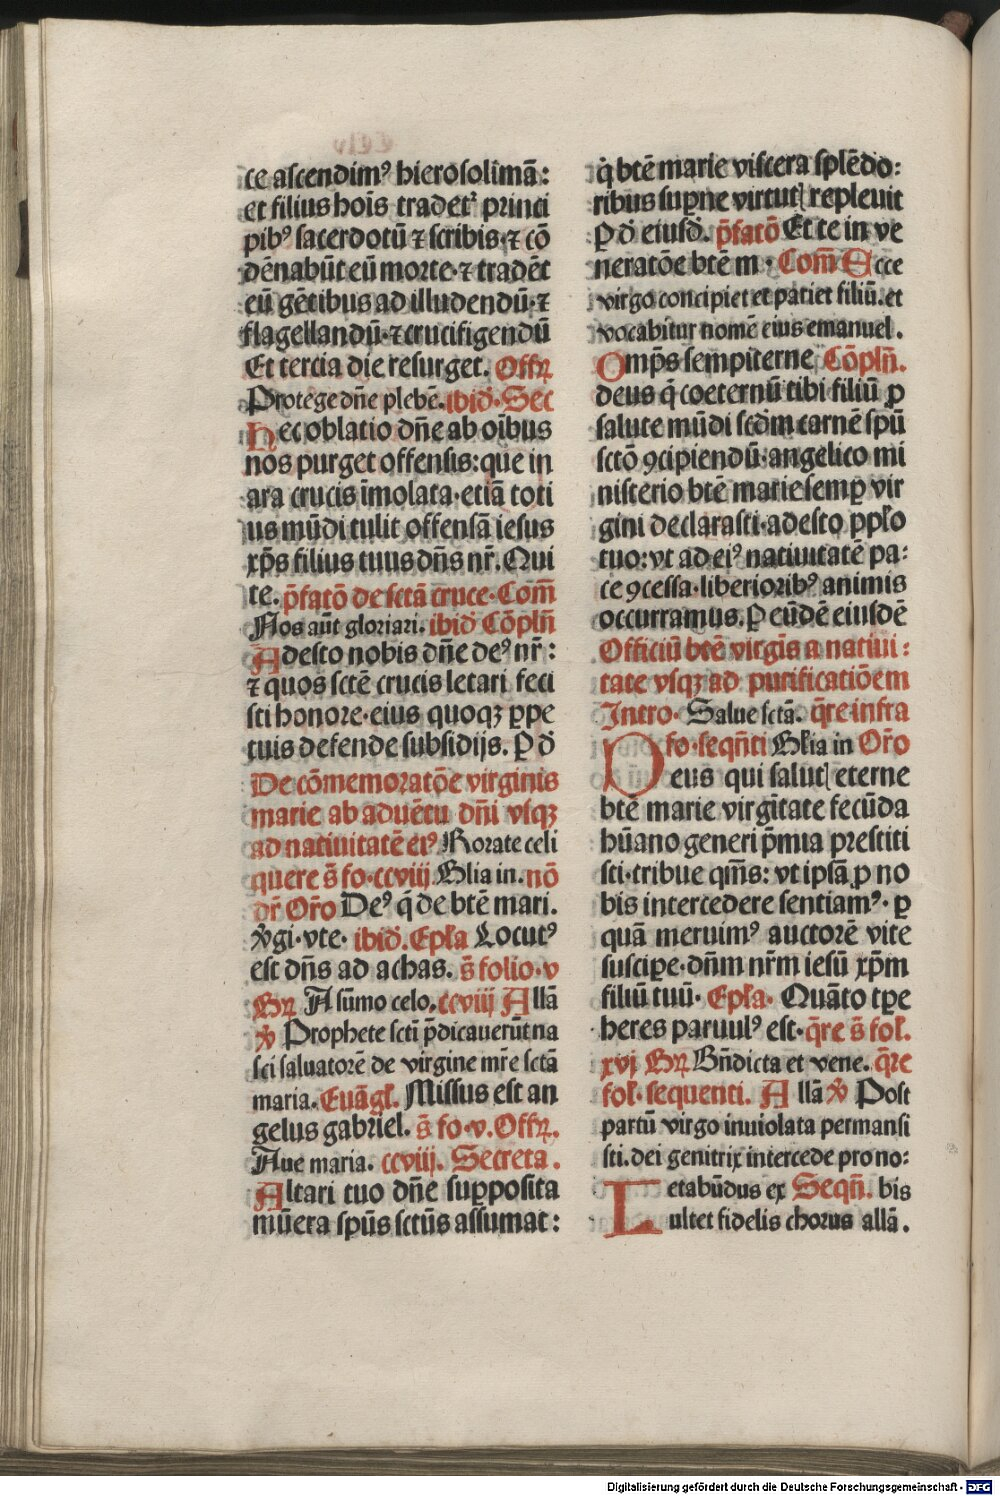 ce ascendimꝰ hierosolimā:
et filius hoīs tradetᷣ princi
pibꝰ sacerdotū ⁊ scribis·⁊ cō
dēnabūt eū morte·⁊ tradēt
eū gētibus ad illudendū·⁊
flagellandū·⁊ crucifigendū
Et tercia die resurget. Offꝝ
Protege dn̄e plebē. ibid̛· Sec
Hec oblatio dn̄e ab oībus
nos purget offensis: que in
ara crucis īmolata·etiā toti
us mūdi tulit offensā iesus
xp̄s filius tuus dn̄s nr̄. Qui
te. p̄fatō de sctā cruce·Com̄
Nos aūt gloriari. ibid̛ Cōpln̄
Adesto nobis dn̄e deꝰ nr̄:
⁊ quos sctē crucis letari feci
sti honore·eius quoqꝫ ꝑpe
tuis defende subsidijs. P d̛
De cōmemoratōe virginis
marie ab aduētu dn̄i vsqꝫ
ad natiuitatē eiꝰ Rorate celi
quere s̄ fo·ccviij Glia in. nō
dr̄ Or̄o Deꝰ q̄ de btē mari.
v̄gi·vte· ibid̛. Ep̄la Locutꝰ
est dn̄s ad achas. s̄ folio·v
Gꝝ A sūmo celo. ccviij Allā
v̄ Prophete sctī p̄dicauerūt na
sci saluatorē de virgine mr̄e sctā
maria. Euāgl̄. Missus est an
gelus gabriel. s̄ fo·v. Offꝝ.
Aue maria. ccviij. Secreta.
Altari tuo dn̄e supposita
mūera spūs sctūs assumat:
q̇ btē marie viscera splēdo:
ribus suꝑne virtutꝭ repleuit
P d̛ eiusd̛. p̄fatō Et te in ve
neratōe btē m· Com̄ Ecce
virgo concipiet et pariet filiū. et
vocabitur nomē eius emanuel.
Omp̄s sempiterne Cōpln̄.
deus q̇ coeternū tibi filiū ꝓ
salute mūdi scd̛m carnē spū
sctō ꝯcipiendū·angelico mi
nisterio btē marie semꝑ vir
gini declarasti·adesto pp̄lo
tuo: vt ad eiꝰ natiuitatē pa:
ce ꝯcessa·liberioribꝰ animis
occurramus. P eūdē eiusdē
Officiū btē virgīs a natiui:
tate vsqꝫ ad purificatiōem
Intro· Salue sctā. q̄re infra
fo·seqn̄ti Glia in Or̄o
Deus qui salutꝭ eterne
btē marie virgītate fecūda
hūano generi p̄mia prestiti
sti·tribue qm̄s: vt ipsā ꝓ no
bis intercedere sentiamꝰ· ꝑ
quā meruimꝰ auctorē vite
suscipe·dn̄m nr̄m iesū xp̄m
filiū tuū· Ep̄la· Quāto tꝑe
heres paruulꝰ est· q̄re s̄ fol̄.
xvj Gꝝ Bn̄dicta et vene. q̄re
fol̄·sequenti. Allā v̄ Post
partū virgo inuiolata permansi
sti. dei genitrix intercede pro no:
Letabūdus ex Seqn̄. bis
ultet fidelis chorus allā.
Digitalisierung gefördert durch die Deutsche Forschungsgemeinschaft - DFG